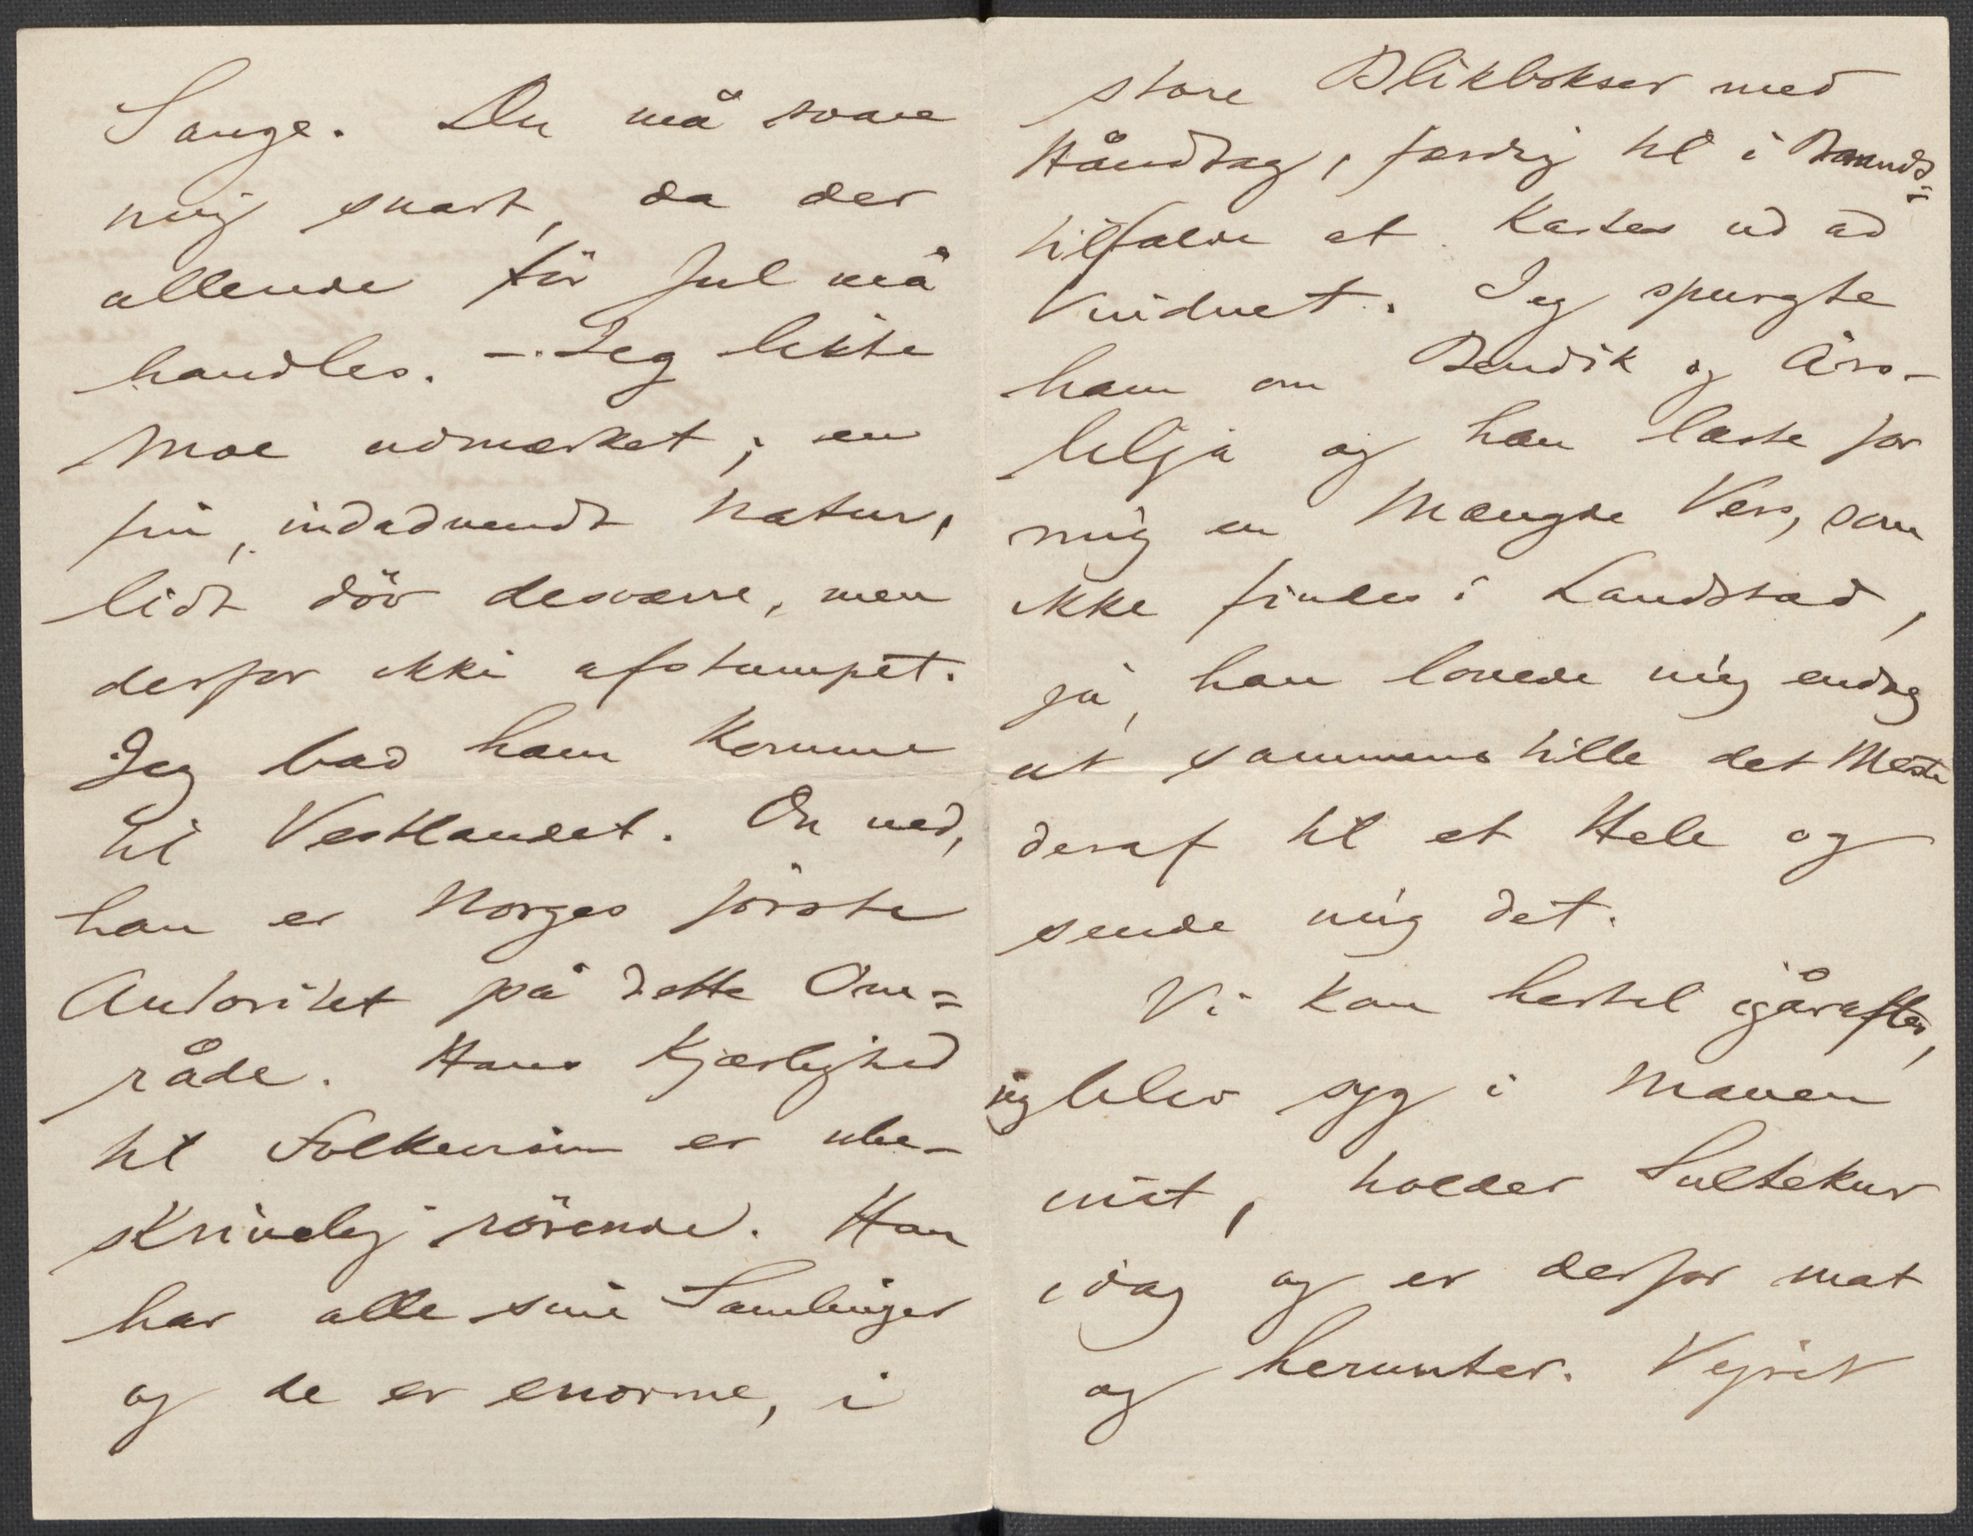 Sange. Du må svare
mig snart, da der
allerede för Jul må
handles. – Jeg likte
Moe udmærket; en
fin, indadvendt Natur,
lidt döv desværre, men
derfor ikke afstumpet.
Jeg bad ham komme
til Vestlandet. Du ved,
han er Norges förste
Autoritet på dette Om=
råde. Hans Kjærlighed
til Folkevisen er ube-
skrivelig rörende. Han
har alle sine Samlinger
og de er enorme, i
store Blikbokser med
Håndtag, færdig til i Brands=
tilfælde at kastes ud ad
Vinduet. Jeg spurgte
ham om Bendik og Åro-
lilja og han læste for
mig en Mængde Vers, som
ikke findes i Landstad,
ja, han lovede mig endog
at sammenstille det Meste
deraf til et Hele og
sende mig det.
Vi kom hertil igåraftes,
jeg blev syg i Maven
inat, holder Sultekur
idag og er derfor mat
og herunter. Vejret